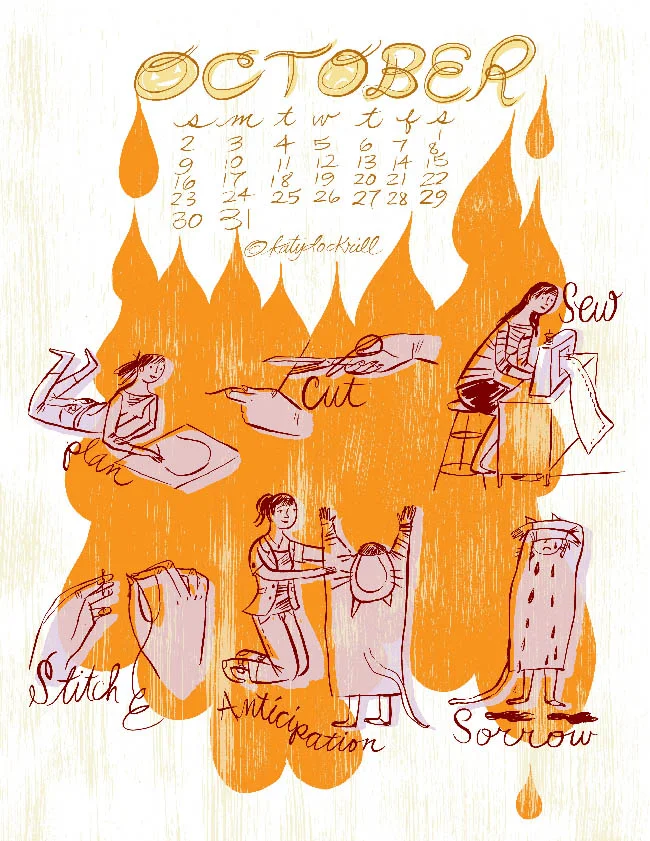 OCTOBER
s m t w t f s
1
2 3 4 5 6 7 8
9 10 11 12 13 14 15
16 17 18 19 20 21 22
23 24 25 26 27 28 29
30 31
© katydockrill
Sew
Cut
plan
Stitch &
Anticipation
Sorrow